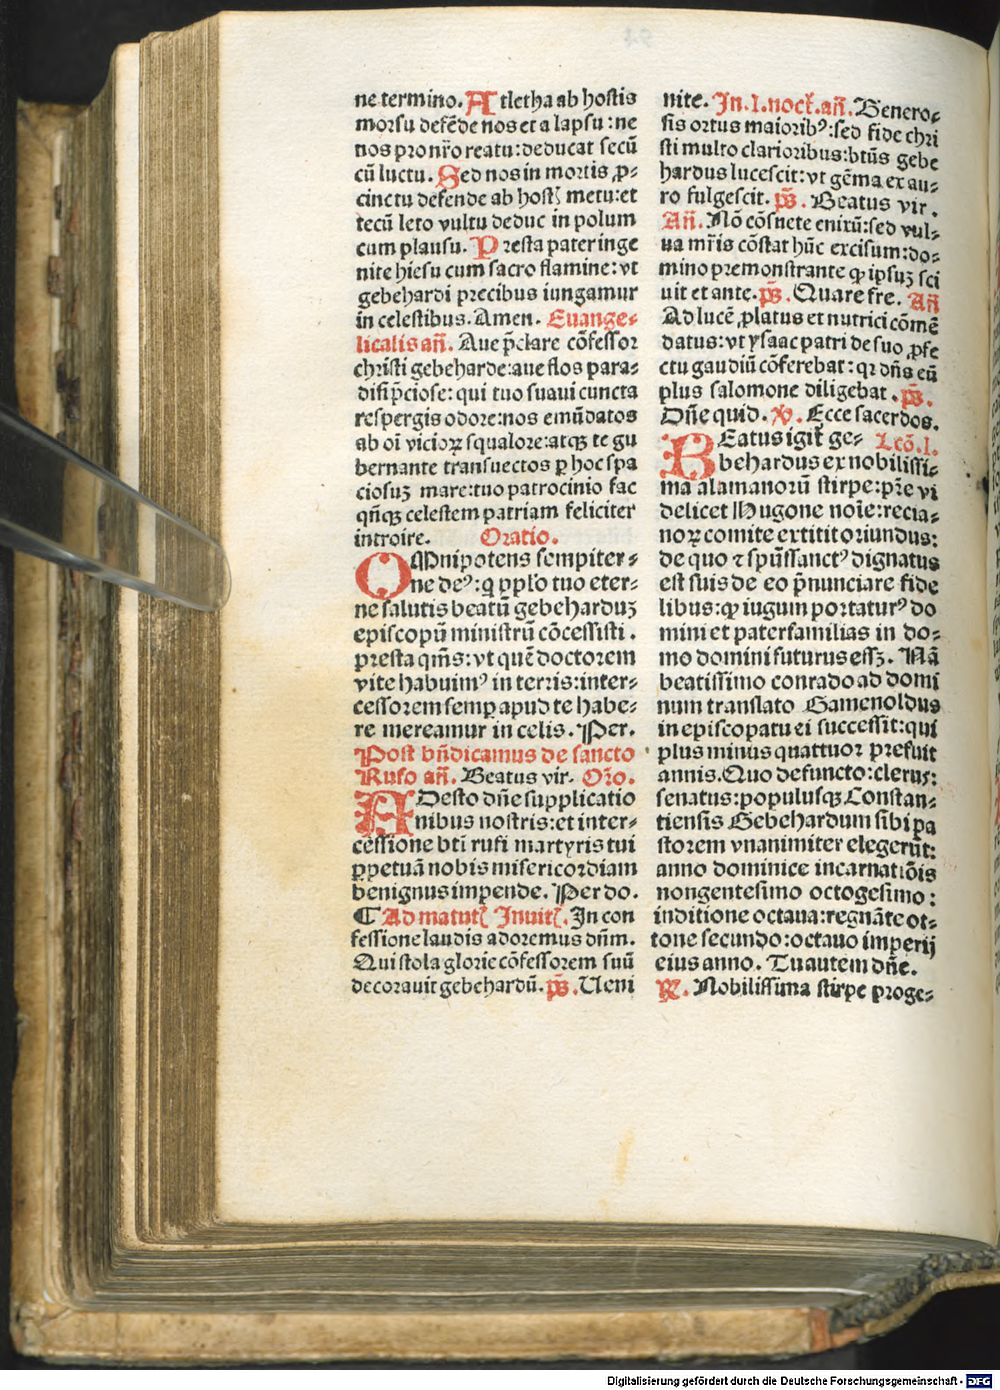 ne termino. Atletha ab hostis
morsu defēde nos et a lapsu: ne
nos pro nr̄o reatu: deducat secū
cū luctu. Sed nos in mortis ꝓ⸗
cinctu defende ab hostꝭ metu: et
tecū leto vultu deduc in polum
cum plausu. Presta pater inge
nite hiesu cum sacro flamine: vt
gebehardi precibus iungamur
in celestibus. Amen. Euange⸗
licalis an̄. Aue p̄clare cōfessor
christi gebeharde: aue flos para⸗
disi p̄ciose: qui tuo suaui cuncta
respergis odore: nos emūdatos
ab oī vicioꝝ squalore: atqꝫ te gu
bernante transuectos ꝑ hoc spa
ciosuꝫ mare: tuo patrocinio fac
qn̄qꝫ celestem patriam feliciter
introire. Oratio.
OMnipotens sempiter⸗
ne deꝰ: q ppl'o tuo eter⸗
ne salutis beatū gebeharduꝫ
episcopū ministrū cōcessisti.
presta qm̄s: vt quē doctorem
vite habuimꝰ in terris: inter⸗
cessorem semꝑ apud te habe⸗
re mereamur in celis. Per.
Post bn̄dicamus de sancto
Rufo an̄. Beatus vir. Or̄o.
ADesto dn̄e supplicatio
nibus nostris: et inter⸗
cessione bti̅ rufi martyris tui
ꝑpetuā nobis misericordiam
benignus impende. Per do.
¶ Ad matutꝭ Inuitꝭ. In con
fessione laudis adoremus dn̄m.
Qui stola glorie cōfessorem suū
decorauit gebehardū. ps̄. Ueni
nite. In .1. noct̄. an̄. Genero⸗
sis ortus maioribꝰ: sed fide chri
sti multo clarioribus: bt̄us gebe
hardus lucescit: vt gēma ex au⸗
ro fulgescit. ps̄. Beatus vir.
An̄. Nō cōsuete enixū: sed vul⸗
ua mr̄is cōstat hūc excisum: do⸗
mino premonstrante ꝙ ipsuꝫ sci
uit et ante. ps̄. Quare fre. An̄
Ad lucē ꝓlatus et nutrici cōmē
datus: vt ysaac patri de suo ꝓfe
ctu gaudiū cōferebat: qꝛ dn̄s eū
plus salomone diligebat. ps̄.
Dn̄e quid. ℣. Ecce sacerdos.
BEatus igit̄ ge⸗ Lec̄o. 1.
behardus ex nobilissi⸗
ma alamanorū stirpe: pr̄e vi
delicet Hugone noīe: recia⸗
noꝝ comite extitit oriundus:
de quo ⁊ spūssanctꝰ dignatus
est suis de eo p̄nunciare fide
libus: ꝙ iugum portaturꝰ do
mini et paterfamilias in do⸗
mo domini futurus essꝫ. Nā
beatissimo conrado ad domi
num translato Gamenoldus
in episcopatu ei successit: qui
plus minus quattuor prefuit
annis. Quo defuncto: clerus:
senatus: populusqꝫ Constan⸗
tiensis Gebehardum sibi pa
storem vnanimiter elegerūt:
anno dominice incarnatiōis
nongentesimo octogesimo:
inditione octaua: regnāte ot⸗
tone secundo: octauo imperij
eius anno. Tu autem dn̄e.
℟. Nobilissima stirpe proge⸗
Digitalisierung gefördert durch die Deutsche Forschungsgemeinschaft - DFG